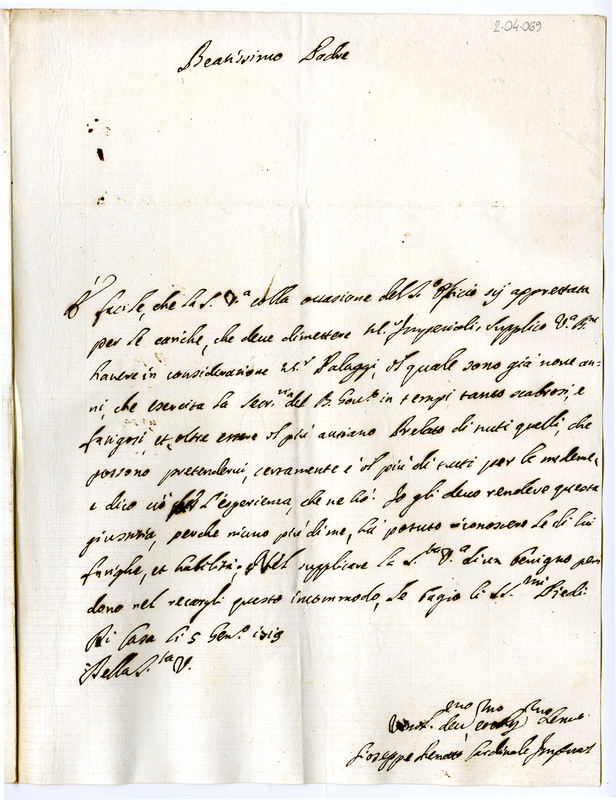 2-04-069
Beatissimo Padre
È facile, che la S. V.a colla occasione del S.o Officio sij apprettata
per le cariche, che deve dimettere M.r Imperiali. Supplico V.a B.ne
havere in considerazione M.r Palaggi, il quale sono già nove an-
ni, che esercita la Secr.ria del B. Gov.o in tempi tanto scabrosi, e
fatigosi, et oltre essere il più anziano Prelato di tutti quelli, che
possono pretendervi, certamente è il più di tutti per le medeme
e dico ciò per l'esperienza, che ne hò. Io gli devo rendere questa
giustizia, perche niuno più di me, hà potuto riconoscere le di lui
fatighe, et habilità; e nel supplicare la S.tà V.a di un benigno per
dono nel recargli questo incommodo, le bagio li SS.mi Piedi
Di Casa li 5 Gen.o
Della S.tà V.
Giuseppe Renato Cardinale Imperiali